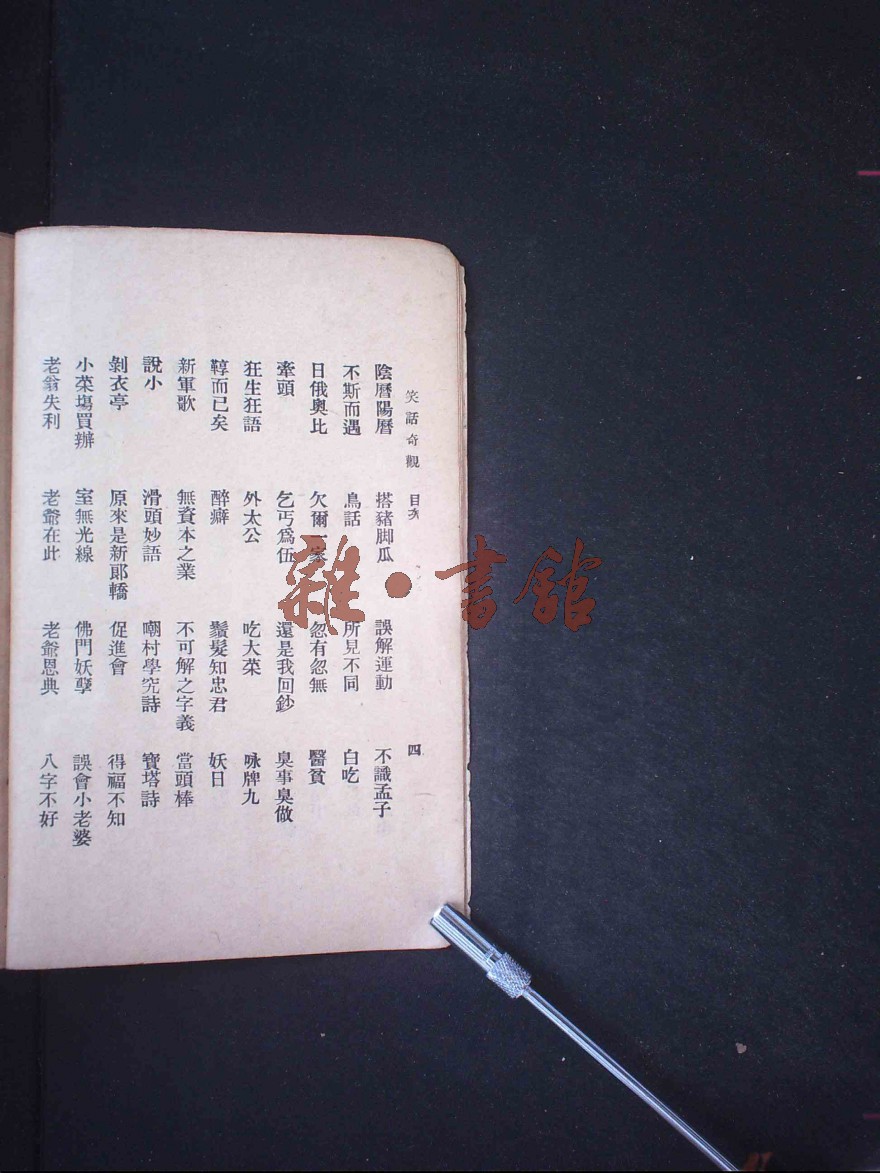 笑話奇觀 目次 四
陰曆陽曆 搭豬脚瓜 誤解運動 不識孟子
不斯而遇 鳥話 所見不同 白吃
日俄奧比 欠爾一 忽有忽無 醫貧
牽頭 乞丐爲伍 還是我回鈔 臭事臭做
狂生狂語 外太公 吃大菜 咏牌九
鞟而已矣 醉癖 鬚髮知忠君 妖日
新軍歌 無資本之業 不可解之字義 當頭棒
說小 滑頭妙語 嘲村學究詩 寶塔詩
剝衣亭 原來是新郞轎 促進會 得福不知
小菜塲買辦 室無光線 佛門妖孽 誤會小老婆
老翁失利 老爺在此 老爺恩典 八字不好
雜·書館